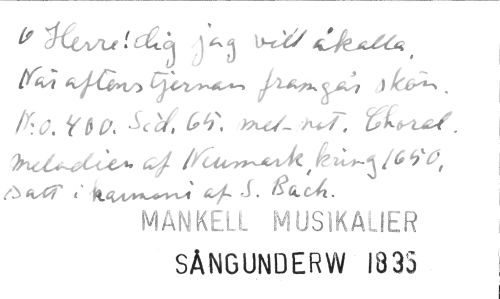 O Herre! dig jag vill åkalla,
När aftonstjernan framgår skön.
N:o. 400. Sid. 65. met-not. Choral.
melodien af Neumark, kring 1650,
satt i harmoni af S. Bach.
MANKELL MUSIKALIER
SÅNGUNDERW 1835